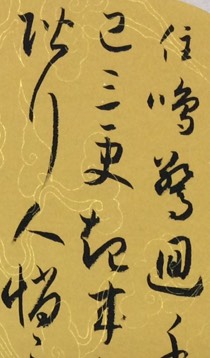 住鳴驚回千
已三更起來
階行人悄